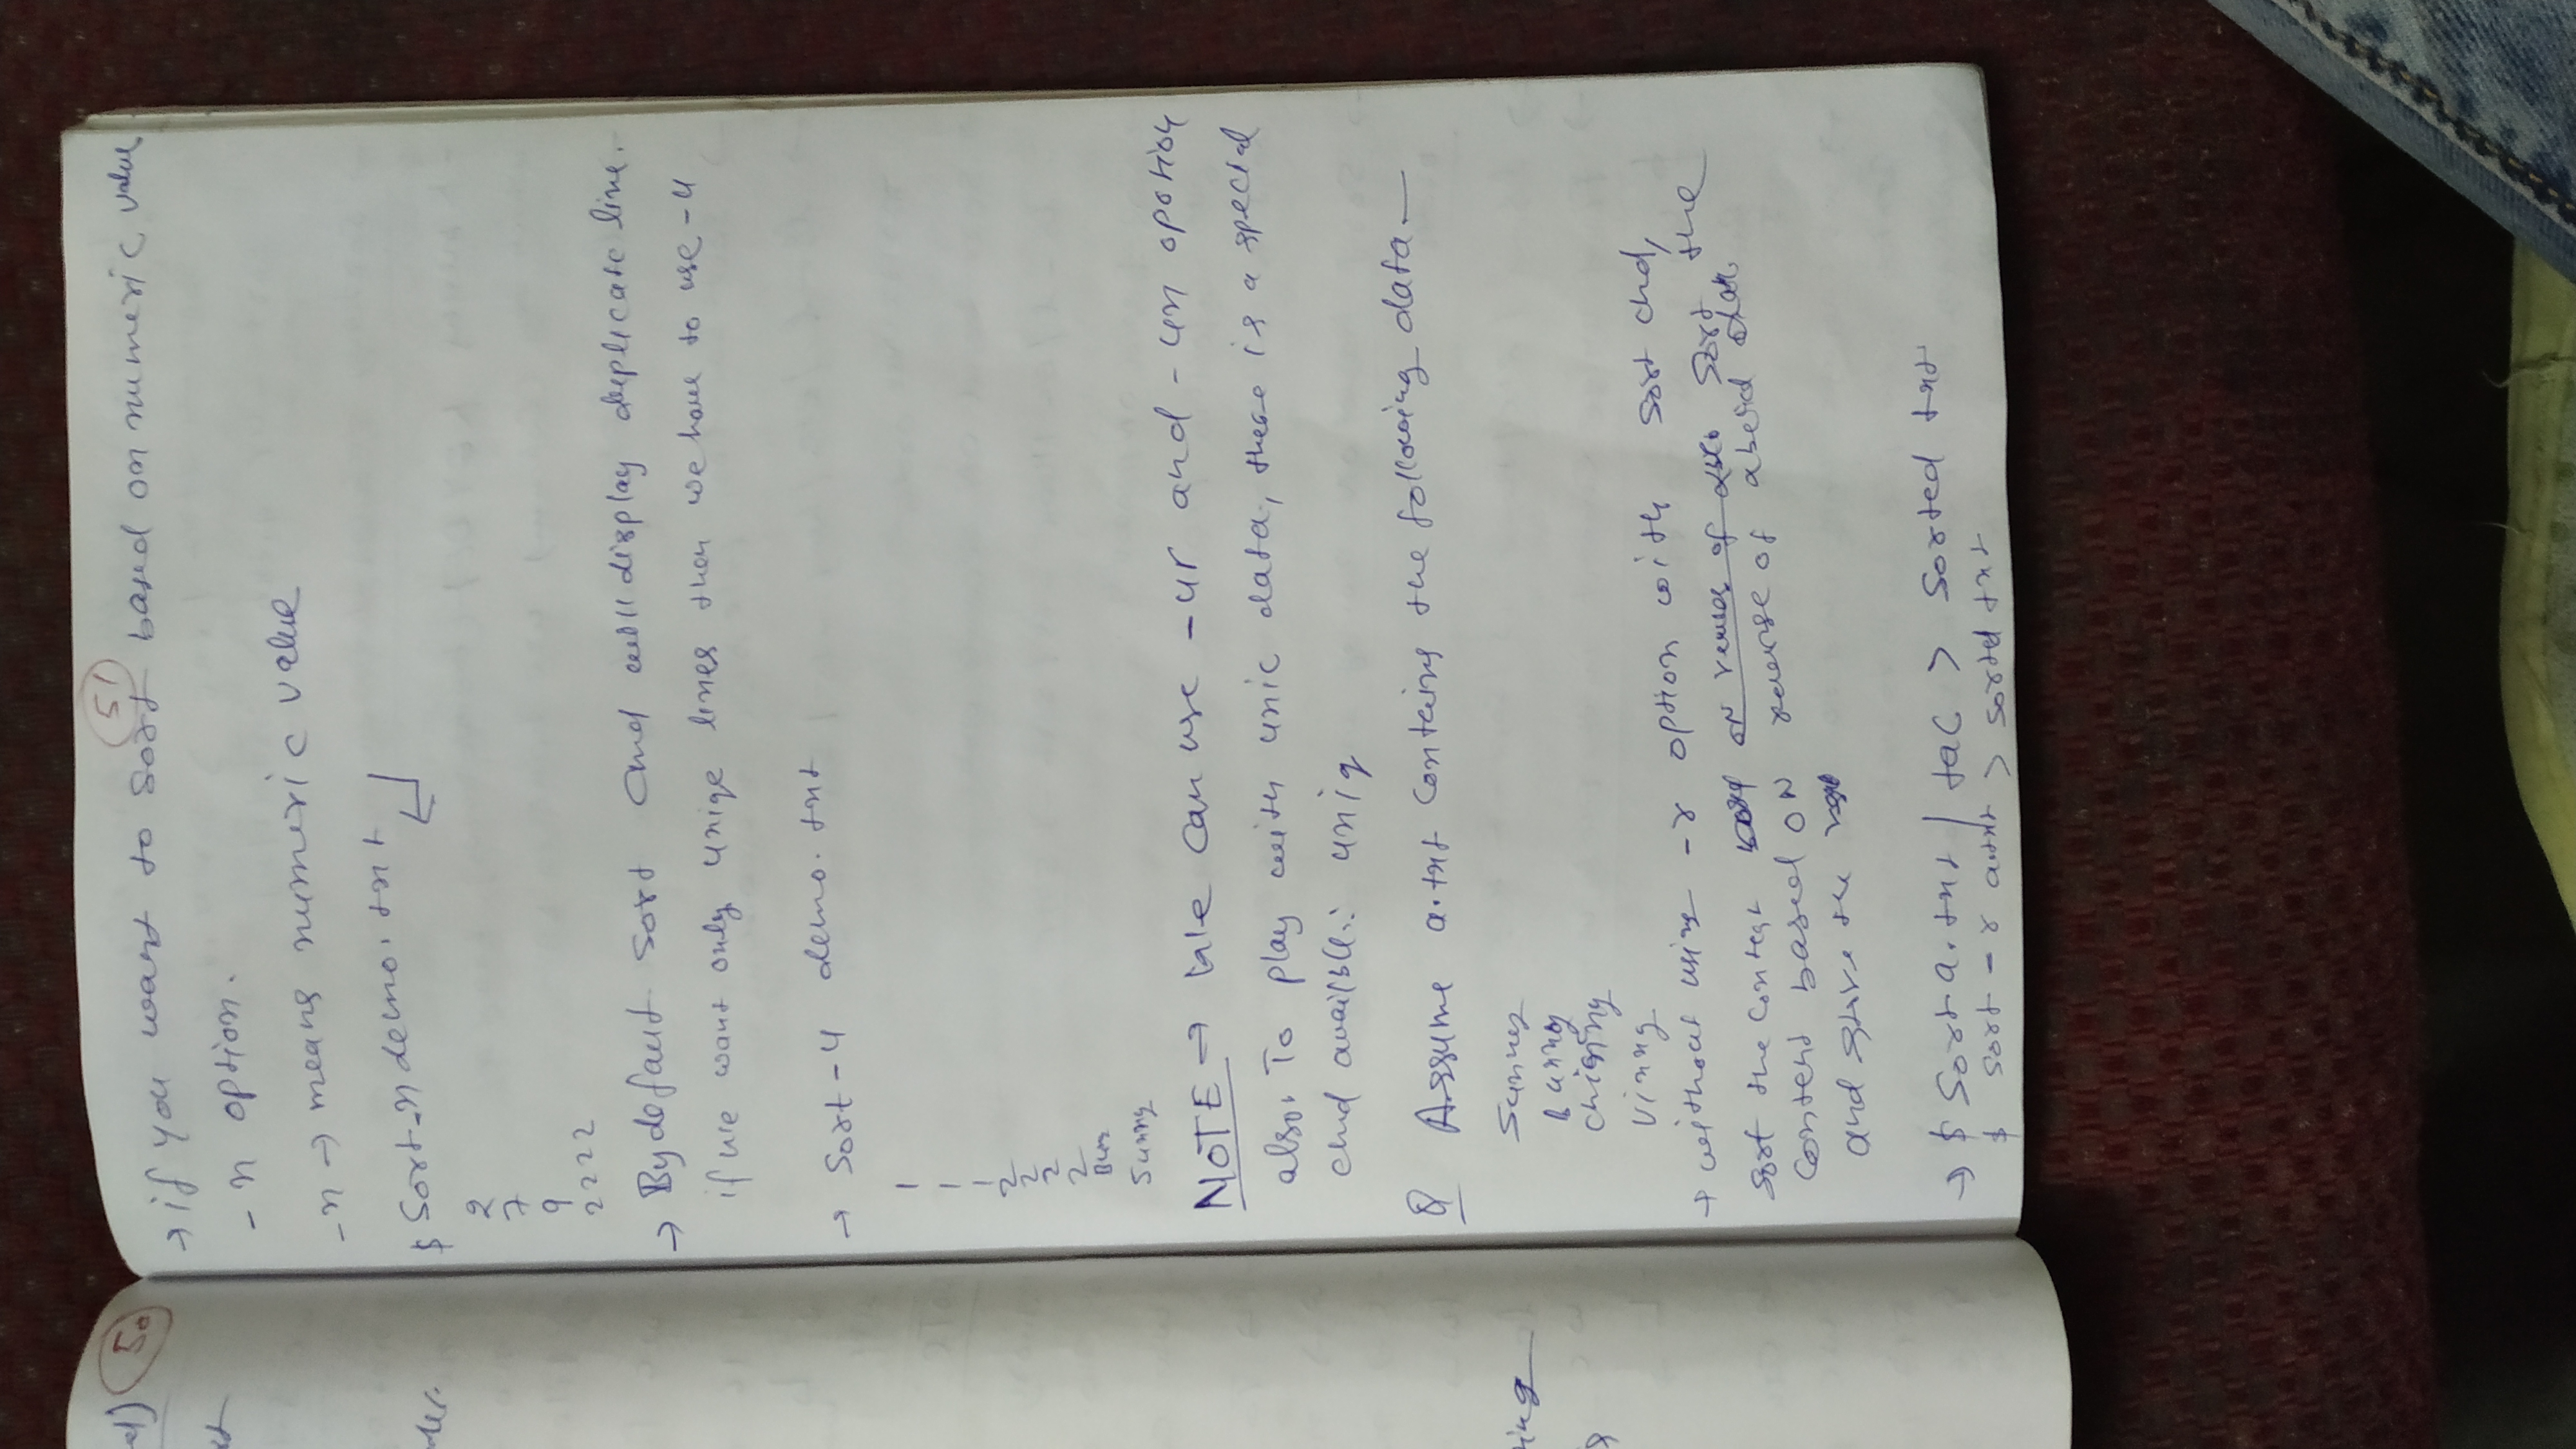 ing
50
51
→ if you want to sort based on numeric value
-n option.
-n → means numeric value
$ Sort -n demo.txt
2
7
9
2222
→ By default sort cmd will display duplicate line.
if we want only uniqe lines then we have to use -u
→ Sort -u demo.txt
1
1
1
2
2
2
Sunny
NOTE → We can use -ur and -un option
also. To play with unic data, there is a special
cmd availble: uniq
Q Assume a.txt contains the following data —
Sunny
bunny
chinny
vinny
→ without using -r option with sort cmd,
sort the content sort the
content based ON reverse of
and store the
→ $ Sort a.txt | tac > sorted txt
$ sort -r a.txt > sorted txt